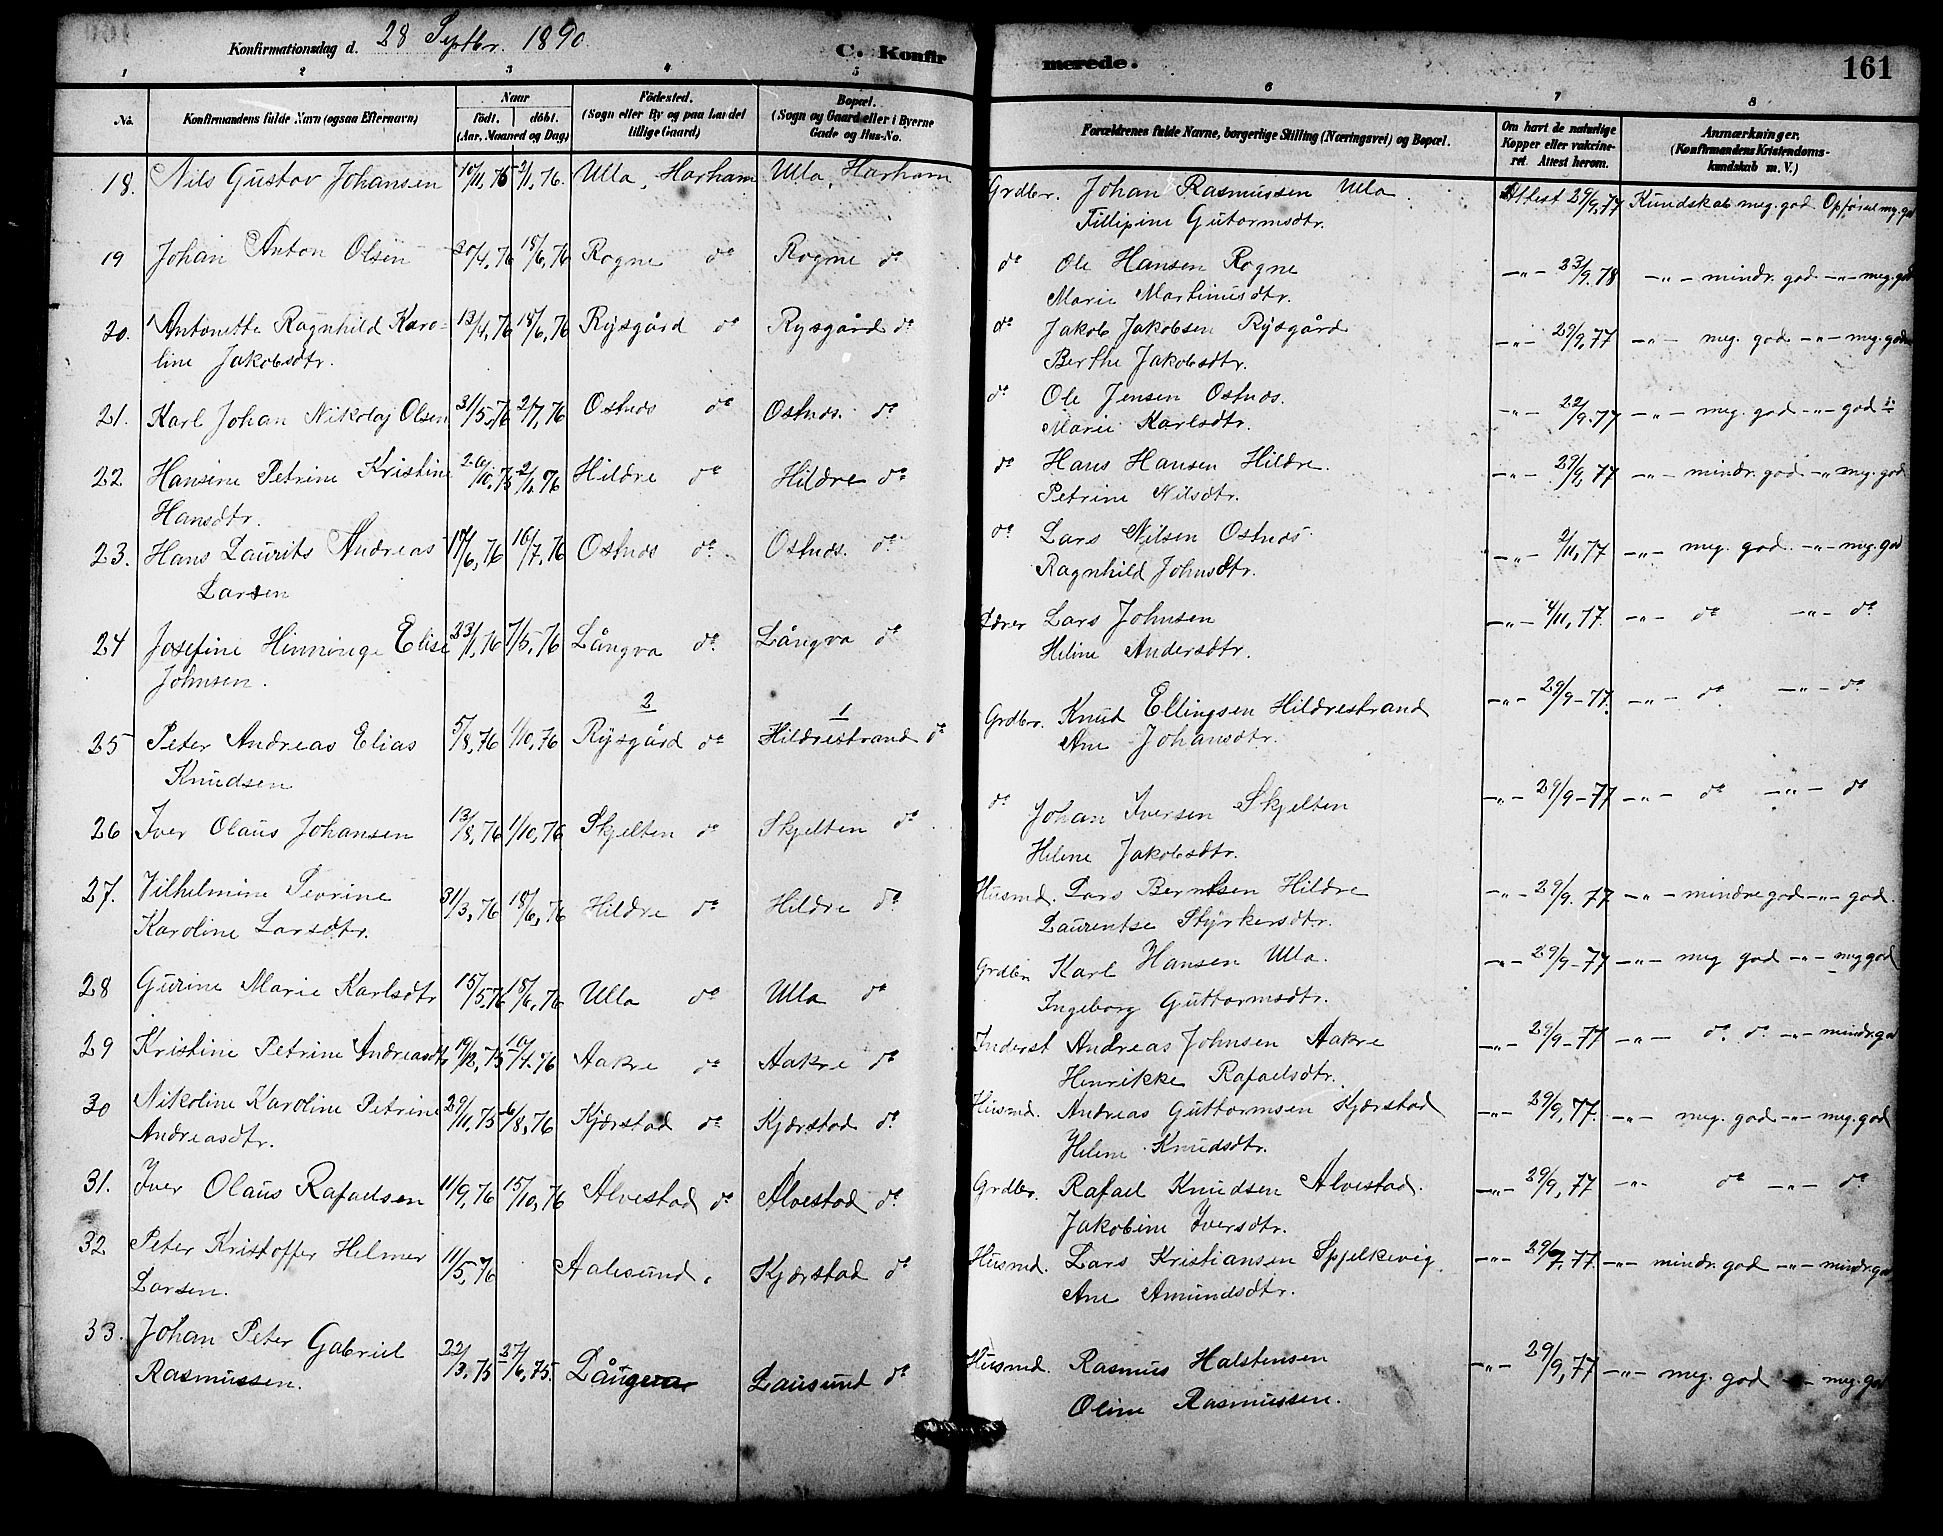 Konfirmationsdag d. 28 Septbr. 1890. C. Konfirmerede. 161
1 2 3 4 5 6 7 8
No. Konfirmandens fulde Navn (ogsaa Efternavn) Naar födt. döbt. (Aar, Maaned og Dag) Födested. (Sogn eller By og paa Landet tillige Gaard) Bopæl. (Sogn og Gaard eller i Byerne Gade og Hus-No. Forældrenes fulde Navne, borgerlige Stilling (Næringsvei) og Bopæl. Om havt de naturlige Kopper eller vakcineret. Attest herom. Anmærkninger. (Konfirmandens Kristendomskundskab m. V.)
18. Nils Gustav Johansen 10/11, 75 2/1, 76. Ulla, Harham Ulla, Harham Grdbr. Johan Rasmussen Ulla Attest 29/9, 77 Kundskab meg. god Opførsel mg. god
Fillipine Gutormsdtr.
19 Johan Anton Olsen 30/4, 76 18/6, 76 Rogne do Rogne do do Ole Hansen Rogne -"- 23/9. 78 -"- mindr. god -"- meg. god
Marie Martinusdtr.
20. Antonette Ragnhild Karo- 13/4, 76 18/6, 76 Rysgård do Rysgård do do Jakob Jakobsen Rysgård -"- 29/9, 77 -"- meg. god -"- meg. god
line Jakobsdtr. Berthe Jakobsdtr.
21. Karl Johan Nikolaj Olsen 31/5, 76 2/7, 76 Ostnes do Ostnes. do do Ole Jensen Ostnes. -"- 22/9. 77 -"- meg. god -"- god
Marie Karlsdtr.
22 Hansine Petrine Kristine 26/10, 75 2/1, 76 Hildre do Hildre do do Hans Hansen Hildre. -"- 29/9, 77 -"- mindr. god -"- meg. god
Hansdtr. Petrine Nilsdtr.
23. Hans Laurits Andreas 17/6, 76 16/7, 76 Ostnes do Ostnes. do do Lars Nilsen Ostnes -"- 2/11, 77 -"- meg. god -"- meg. god
Larsen Ragnhild Johnsdtr.
24 Josefine Elise 23/1, 76 7/5, 76 Långva do Långva do Lærer Lars Johnsen -"- 4/11, 77. -"- do -"- do
Johnsen. Heline Andersdtr.
2 1
25 Peter Andreas Elias 5/8, 76 1/10, 76 Rysgård do Hildrestrand do Grdbr. Knud Ellingsen Hildrestrand -"- 29/9-77. -"- do -"- do
Knudsen Ane Johansdtr.
26 Iver Olaus Johansen 13/8, 76 1/10, 76 Skjelten do Skjelten do do Johan Iversen Skjelten -"- 29/9-77 -"- do -"- do
Helene Jakobsdtr.
27. Vilhelmine Sevrine 31/3, 76 18/6, 76 Hildre do Hildre do Husmd. Lars Berntsen Hildre -"- 29/9. 77 -"- mindre god -"- god.
Karoline Larsdtr. Laurentse Styrkersdtr.
28 Gurine Marie Karlsdtr 15/5, 76 18/6, 76 Ulla do Ulla do Grdbr Karl Hansen Ulla. -"- 29/9-77 -"- meg god -"- meg god
Ingeborg Guttormsdtr.
29 Kristine Petrine Andreasdtr 19/12, 75 17/4. 76 Aakre do Aakre do Inderst Andreas Johnsen Aakre -"- 29/9-77 -"- do. do -"- mindr. god
Henrikke Rafaelsdtr.
30 Nikoline Karoline Petrine 29/11, 75 6/8, 76 Kjærstad do Kjærstad do Husmd. Andreas Guttormsen Kjærstad -"- 29/9, 77. -"- meg. god -"- meg. god
Andreasdtr. Helene Knudsdtr.
31. Iver Olaus Rafaelsen 11/9, 76 15/10, 76 Alvestad do Alvestad do Grdbr. Rafael Knudsen Alvestad. -"- 29/9, 77 -"- do -"- do
Jakobine Iversdtr.
32 Peter Kristoffer Helmer 11/5, 76 Aalesund. Kjærstad do Husmd. Lars Kristiansen Spjelkevig -"- 29/9, 77. -"- mindr. god -"- mindr. god
Larsen. Ane Amundsdtr.
33. Johan Peter Gabriel 22/3, 75 27/6, 75. Långva Lausund do Husmd. Rasmus Halstensen -"- 29/9, 77 -"- meg. god -"- meg. god
Rasmussen. Oline Rasmussen.